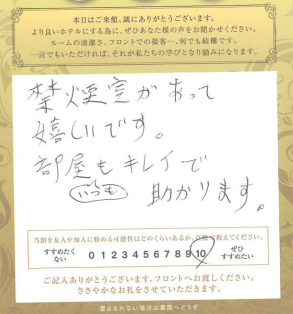 本日はご来館、誠にありがとうございます。
より良いホテルにする為に、ぜひあなた様の声をお聞かせください。
ルームの清潔さ、フロントでの接客…、何でも結構です。
一言でもいただければ、それが私たちの学びとなり励みになります。
禁煙室があって
嬉しいです。
部屋もキレイで
いつも 助かります。
当館を友人や知人に勧める可能性はどのくらいあるか、点数で教えてください。
すすめたくない 0 1 2 3 4 5 6 7 8 9 10 ぜひすすめたい
ご記入ありがとうございます。フロントへお渡しください。
ささやかなお礼をさせていただきます。
愛されない場合は裏面へどうぞ